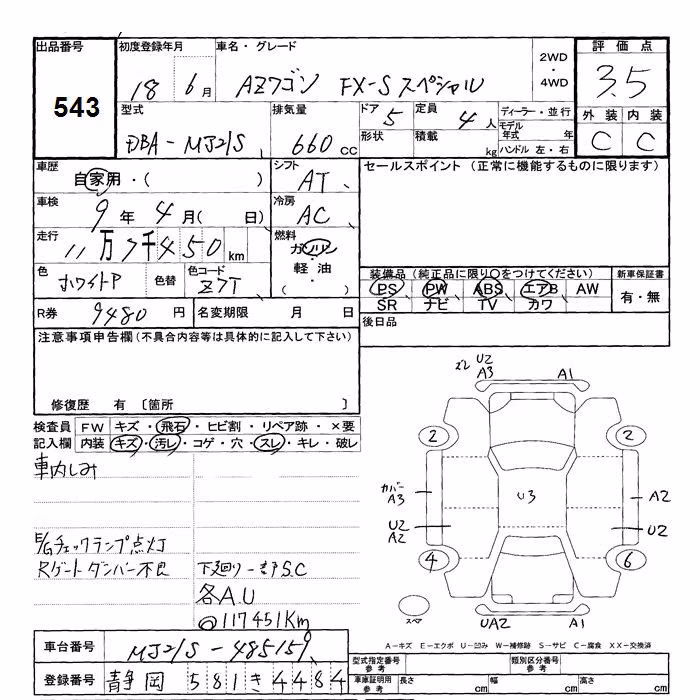 出品番号 初度登録年月 車名・グレード 2WD・4WD 評価点
543 18 6月 AZワゴン FX-S スペシャル 3.5
型式 排気量 ドア 5 定員 4人 ディーラー・並行 外装 内装
DBA-MJ21S 660cc 形状 積載 kg モデル年式 年 ハンドル 左・右 C C
車歴 自家用・( ) シフト AT セールスポイント (正常に機能するものに限ります)
車検 9年 4月( 日) 冷房 AC
走行 11万7千450km 燃料 ガソリン・軽油・( )
色 ホワイトP 色替 色コード Z7T
装備品 (純正品に限り○をつけてください) 新車保証書
PS PW ABS エアB AW 有・無
SR ナビ TV カワ
R券 9480円 名変期限 月 日 後日品
注意事項申告欄 (不具合内容等は具体的に記入して下さい)
修復歴 有 〔箇所 〕
検査員 FW キズ・飛石・ヒビ割・リペア跡・×要
記入欄 内装 キズ・汚レ・コゲ・穴・スレ・キレ・破レ
車内しみ
E/Gチェックランプ点灯
Rゲートダンパー不良 下廻り S.C
各A.U
117451Km
ズレ U2 A3 A1
2 2
カバー A3 U3 A2
U2 A2 U2
4 6
スペア UA2 A1
A-キズ E-エクボ U-凹み W-補修跡 S-サビ C-腐食 XX-交換済
車台番号 MJ21S-485159
登録番号 静岡 581 き 4484
型式指定番号 参考 類別区分番号 参考
車庫証明用 参考 長さ cm 幅 cm 高さ cm